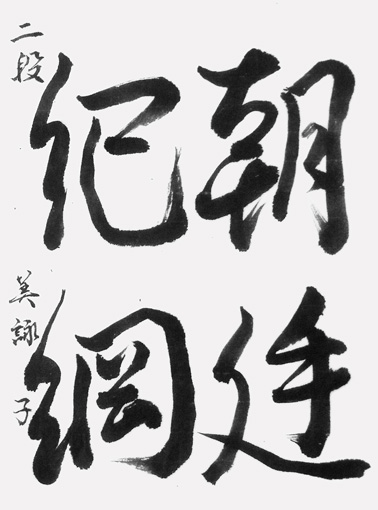 朝廷
紀綱
二段 美詠子